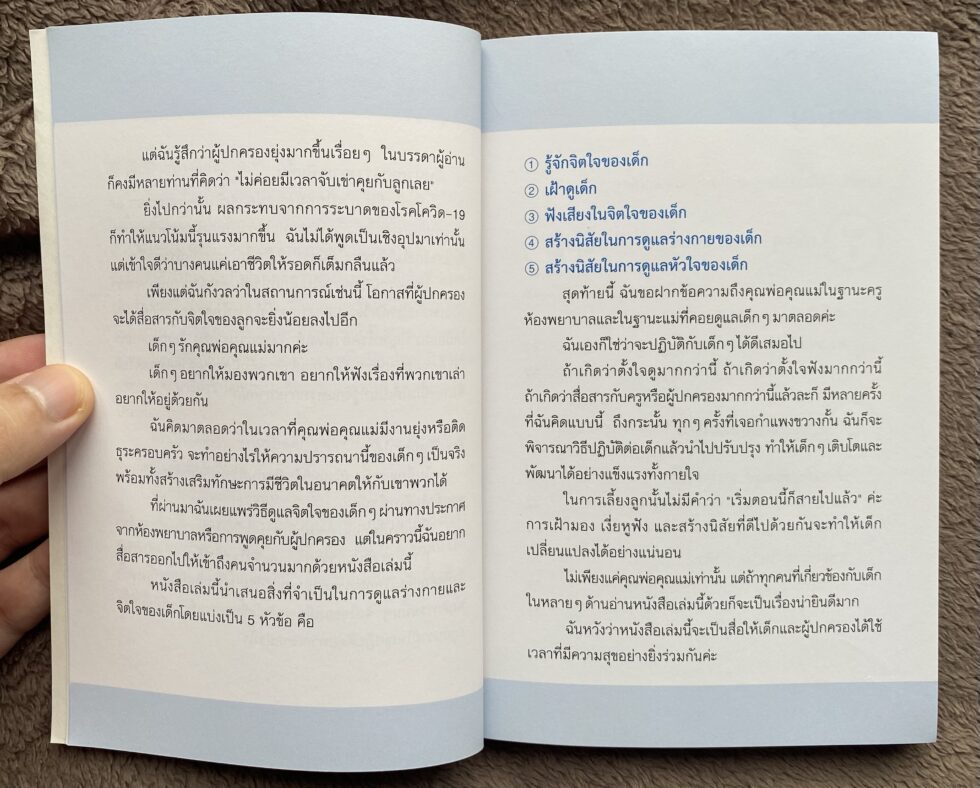 แต่ฉันรู้สึกว่าผู้ปกครองยุ่งมากขึ้นเรื่อยๆ ในบรรดาผู้อ่าน
ก็คงมีหลายท่านที่คิดว่า "ไม่ค่อยมีเวลาจับเข่าคุยกับลูกเลย"
ยิ่งไปกว่านั้น ผลกระทบจากการระบาดของโรคโควิด-19
ก็ทำให้แนวโน้มนี้รุนแรงมากขึ้น ฉันไม่ได้พูดเป็นเชิงอุปมาเท่านั้น
แต่เข้าใจดีว่าบางคนแค่เอาชีวิตให้รอดก็เต็มกลืนแล้ว
เพียงแต่ฉันกังวลว่าในสถานการณ์เช่นนี้ โอกาสที่ผู้ปกครอง
จะได้สื่อสารกับจิตใจของลูกจะยิ่งน้อยลงไปอีก
เด็กๆ รักคุณพ่อคุณแม่มากค่ะ
เด็กๆ อยากให้มองพวกเขา อยากให้ฟังเรื่องที่พวกเขาเล่า
อยากให้อยู่ด้วยกัน
ฉันคิดมาตลอดว่าในเวลาที่คุณพ่อคุณแม่มีงานยุ่งหรือติด
ธุระครอบครัว จะทำอย่างไรให้ความปรารถนานี้ของเด็กๆ เป็นจริง
พร้อมทั้งสร้างเสริมทักษะการมีชีวิตในอนาคตให้กับเขาพวกได้
ที่ผ่านมาฉันเผยแพร่วิธีดูแลจิตใจของเด็กๆ ผ่านทางประกาศ
จากห้องพยาบาลหรือการพูดคุยกับผู้ปกครอง แต่ในคราวนี้ฉันอยาก
สื่อสารออกไปให้เข้าถึงคนจำนวนมากด้วยหนังสือเล่มนี้
หนังสือเล่มนี้นำเสนอสิ่งที่จำเป็นในการดูแลร่างกายและ
จิตใจของเด็กโดยแบ่งเป็น 5 หัวข้อ คือ
① รู้จักจิตใจของเด็ก
② เฝ้าดูเด็ก
③ ฟังเสียงในจิตใจของเด็ก
④ สร้างนิสัยในการดูแลร่างกายของเด็ก
⑤ สร้างนิสัยในการดูแลหัวใจของเด็ก
สุดท้ายนี้ ฉันขอฝากข้อความถึงคุณพ่อคุณแม่ในฐานะครู
ห้องพยาบาลและในฐานะแม่ที่คอยดูแลเด็กๆ มาตลอดค่ะ
ฉันเองก็ใช่ว่าจะปฏิบัติกับเด็กๆ ได้ดีเสมอไป
ถ้าเกิดว่าตั้งใจดูมากกว่านี้ ถ้าเกิดว่าตั้งใจฟังมากกว่านี้
ถ้าเกิดว่าสื่อสารกับครูหรือผู้ปกครองมากกว่านี้แล้วละก็ มีหลายครั้ง
ที่ฉันคิดแบบนี้ ถึงกระนั้น ทุกๆ ครั้งที่เจอกำแพงขวางกั้น ฉันก็จะ
พิจารณาวิธีปฏิบัติต่อเด็กแล้วนำไปปรับปรุง ทำให้เด็กๆ เติบโตและ
พัฒนาได้อย่างแข็งแรงทั้งกายใจ
ในการเลี้ยงลูกนั้นไม่มีคำว่า "เริ่มตอนนี้ก็สายไปแล้ว" ค่ะ
การเฝ้ามอง เงี่ยหูฟัง และสร้างนิสัยที่ดีไปด้วยกันจะทำให้เด็ก
เปลี่ยนแปลงได้อย่างแน่นอน
ไม่เพียงแค่คุณพ่อคุณแม่เท่านั้น แต่ถ้าทุกคนที่เกี่ยวข้องกับเด็ก
ในหลายๆ ด้านอ่านหนังสือเล่มนี้ด้วยก็จะเป็นเรื่องน่ายินดีมาก
ฉันหวังว่าหนังสือเล่มนี้จะเป็นสื่อให้เด็กและผู้ปกครองได้ใช้
เวลาที่มีความสุขอย่างยิ่งร่วมกันค่ะ